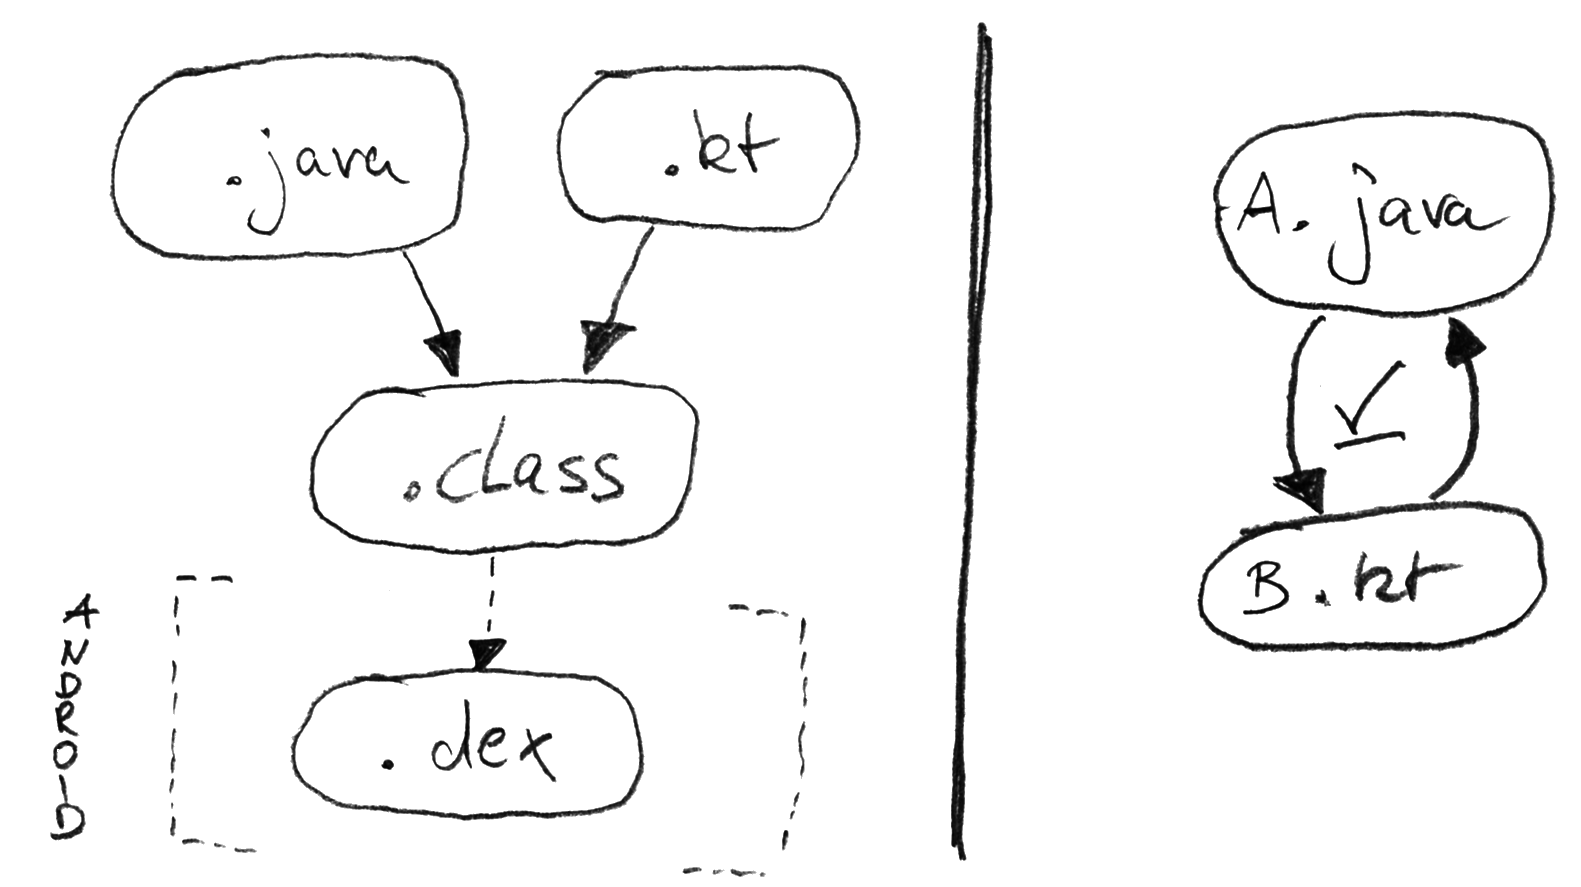 .java
.kt
.class
ANDROID
.dex
A.java
B.kt